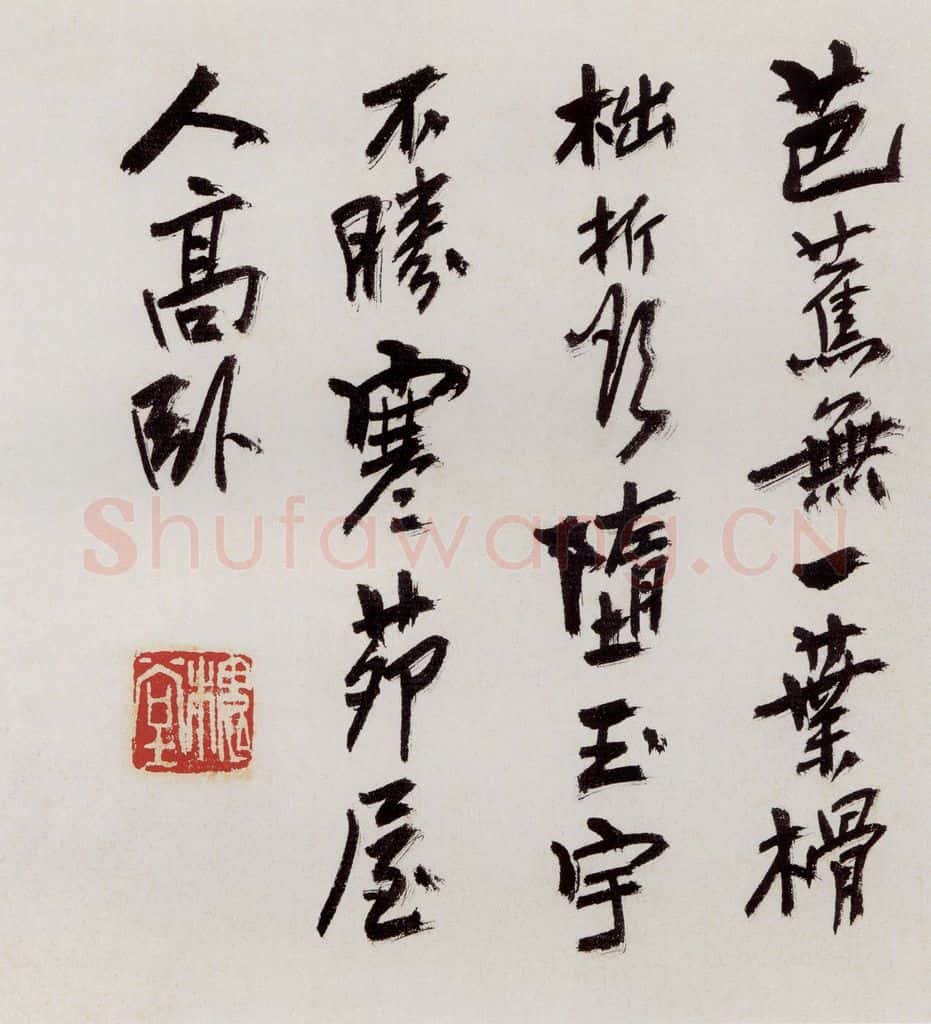 芭蕉無一葉榾
柮折欲墮玉宇
不勝寒茆屋
人高臥
Shufawang.CN